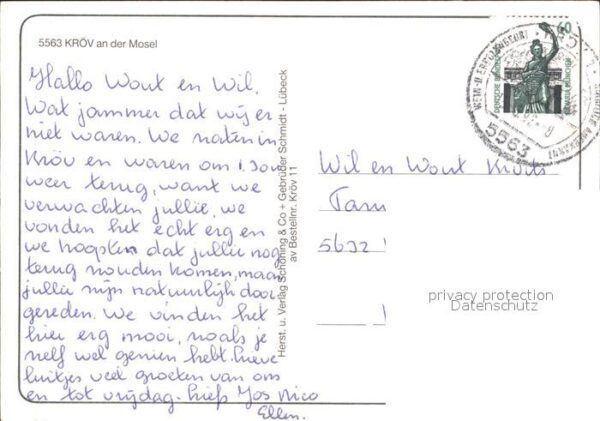 5563 KRÖV an der Mosel
Hallo Wout en Wil,
Wat jammer dat wij er
niet waren. We zaten in
Kröv en waren om 1.30 uur
weer terug, want we
verwachten jullie, we
vonden het echt erg en
we hoopten dat jullie nog
terug zouden komen, maar
jullie zijn natuurlijk door
gereden. We vinden het
hier erg mooi, zoals je
zelf wel gezien hebt. Lieve
luitjes veel groeten van ons
en tot vrijdag. Liefs Jos Nico
Ellen.
Herst. u. Verlag Schöning & Co + Gebrüder Schmidt - Lübeck
av Bestellnr. Kröv 11
60
DEUTSCHE BUNDESPOST
BAVARIA MÜNCHEN
5563
Wil en Wout
5632
privacy protection
Datenschutz